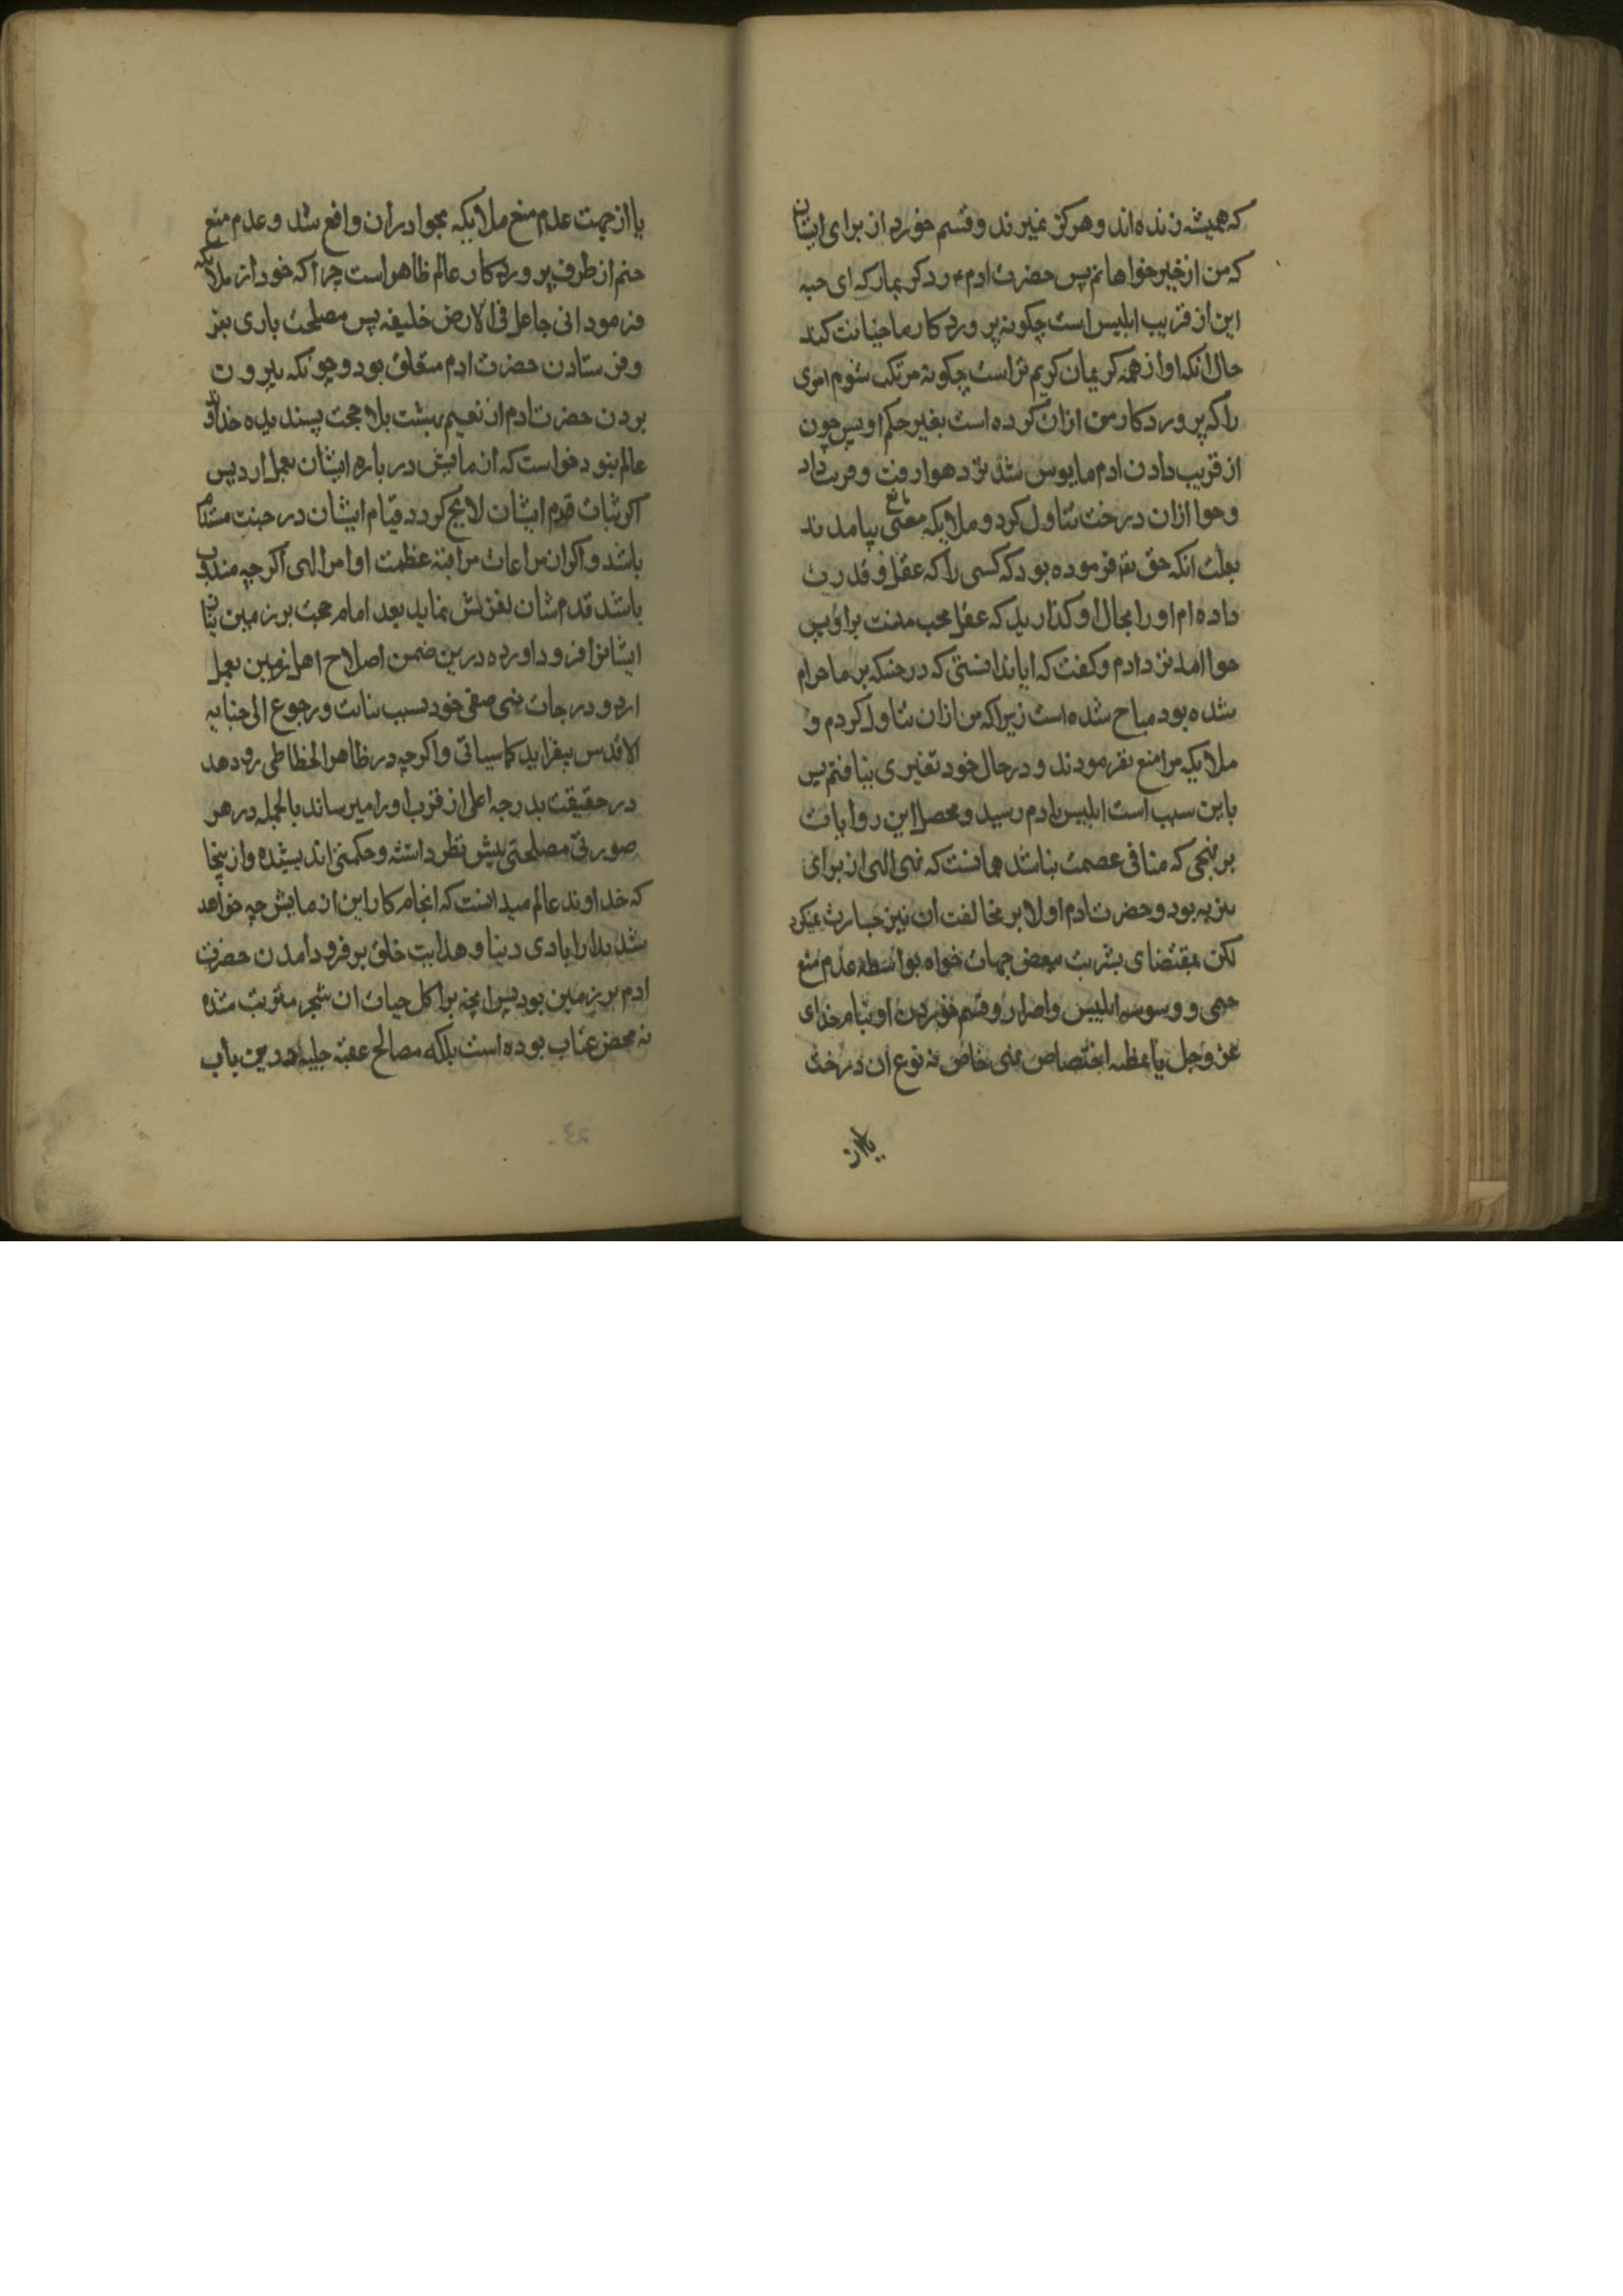 که همیشه زنده اند و هرکز نمیرند و قسم خورد از برای ایشان
که من از خیرخواهانم پس حضرت ادم ع رد کر بمار که ای حیه
این از فریب ابلیس است چکونه پروردکار ما خیانت کند
حال انکه او از همه کریمان کریم تر است چکونه مرتکب شوم امری
را که پروردکار من از ان کرده است بغیر حکم او پس چون
از فریب دادن ادم مایوس شد نزد حوا رفت و فریب داد
و حوا از ان درخت تناول کرد و ملایکه بمعنی مانع نیامدند
بعلت انکه حق تع فرموده بود که کسی را که عقل و قدرت
داده ام او را بحال او کذارید که عقل محب منست بر او پس
حوا امد نزد ادم و کفت که ایا ندانستی که درختیکه بر ما حرام
شده بود مباح شده است زیرا که من از ان تناول کردم و
ملایکه مرا منع نفرمودند و در حال خود تغیری نیافتم پس
باین سبب است ابلیس بادم رسید و محصل این روایات
بر نهجی که منافی عصمت نباشد همانست که نهی الهی از برای
تنزیه بود و حضرت ادم اولا بر مخالفت ان نیز جسارت نمیکرد
لکن بمقتضای بشریت ببعض جهات خواه بواسطه عدم منع
حتمی و وسوسه ابلیس و اصرار و قسم خوردن او بنام خدای
عز و جل یا بمظنه اختصاص نهی خاص نه نوع ان درخت
یا از
یا از جهت عدم منع ملایکه بحوا در ان واقع شد و عدم منع
حتم از طرف پروردکار عالم ظاهر است چرا که خود از ملایکه
فرمود انی جاعل فی الارض خلیفه پس مصلحت باری بنز
و فرستادن حضرت ادم متعلق بود و چونکه بیرون
بردن حضرت ادم از نعیم بهشت بلا حجت پسندیده خداوند
عالم نبود خواست که ازمایش درباره ایشان بعمل ارد پس
اکر ثبات قدم ایشان لایح کردد قیام ایشان در جنت مستدام
باشد و اکر ان مراعات مراقبه عظمت اوامر الهی اکرچه مندوب
باشد قدم شان لغزش نماید بعد اتمام حجت بر زمین
ایشانرا فرود اورده درین ضمن اصلاح اهل زمین بعمل
ارد و درجات نبی صفی خود بسبب انابت و رجوع الی جنابه
الاقدس بیفزاید کما سیاتی و اکرچه در ظاهر انحطاطی رو دهد
در حقیقت بدرجه اعلی از قرب او را میرساند بالجمله در هر
صورتی مصلحتی پیش نظر داشته و حکمتی اندیشیده و از ینجا
که خداوند عالم میدانست که انجام کار این ازمایش چه خواهد
شد مدار ابادی دنیا و هدایت خلق بر فرود امدن حضرت
ادم بر زمین بود پس انچه بر اکل حیات ان شجر مترتب شده
نه محض عتاب بوده است بلکه مصالح جلیله درین باب